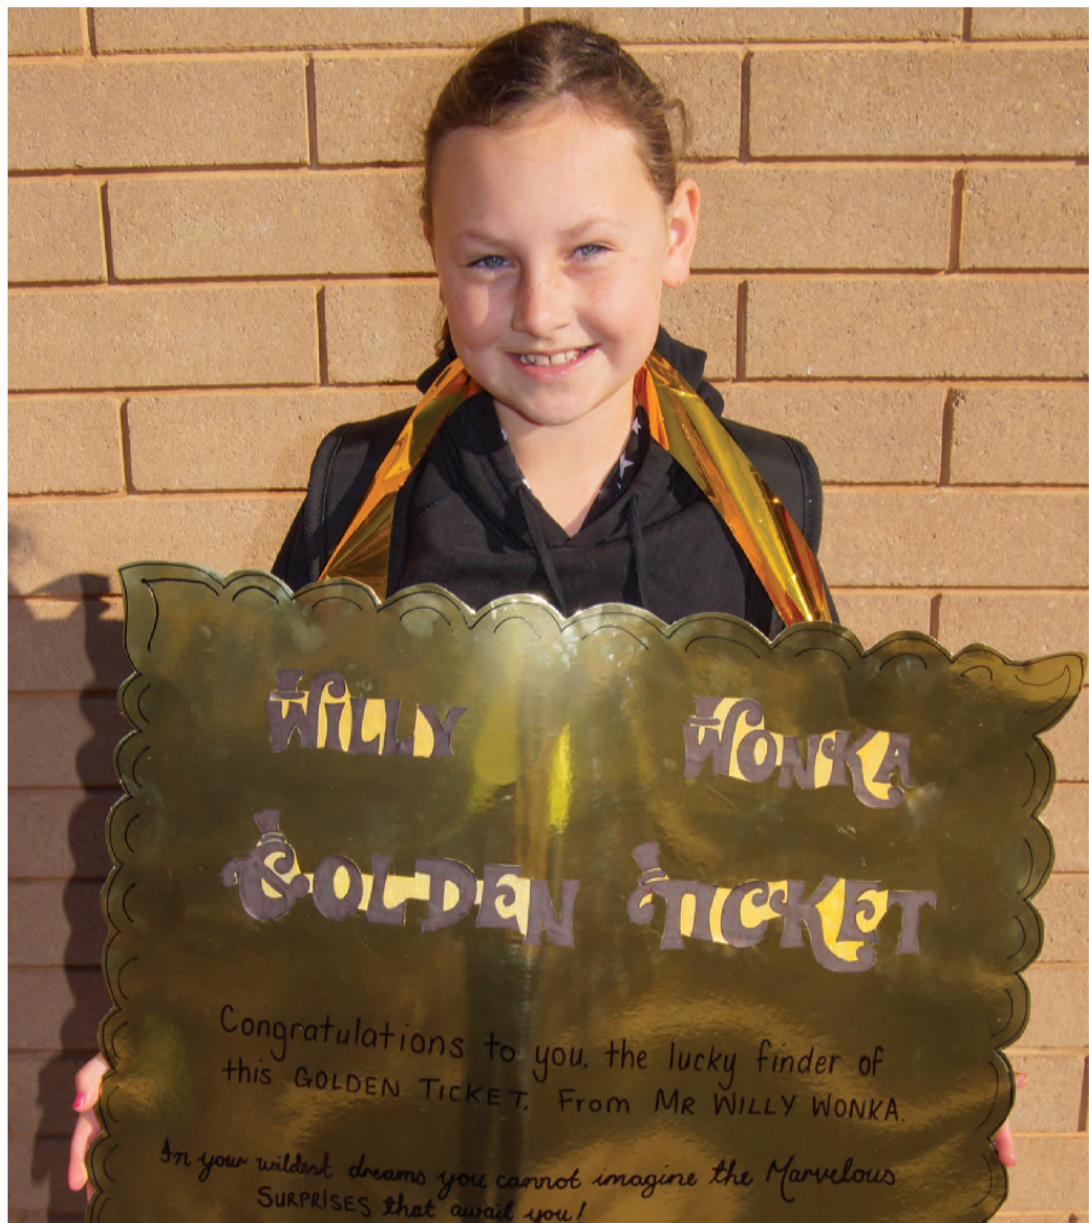 WiLLY WONKA
GOLDEN TICKET
Congratulations to you, the lucky finder of
this GOLDEN TICKET. From MR WILLY WONKA.
In your wildest dreams you cannot imagine the Marvelous
SURPRISES that await you!